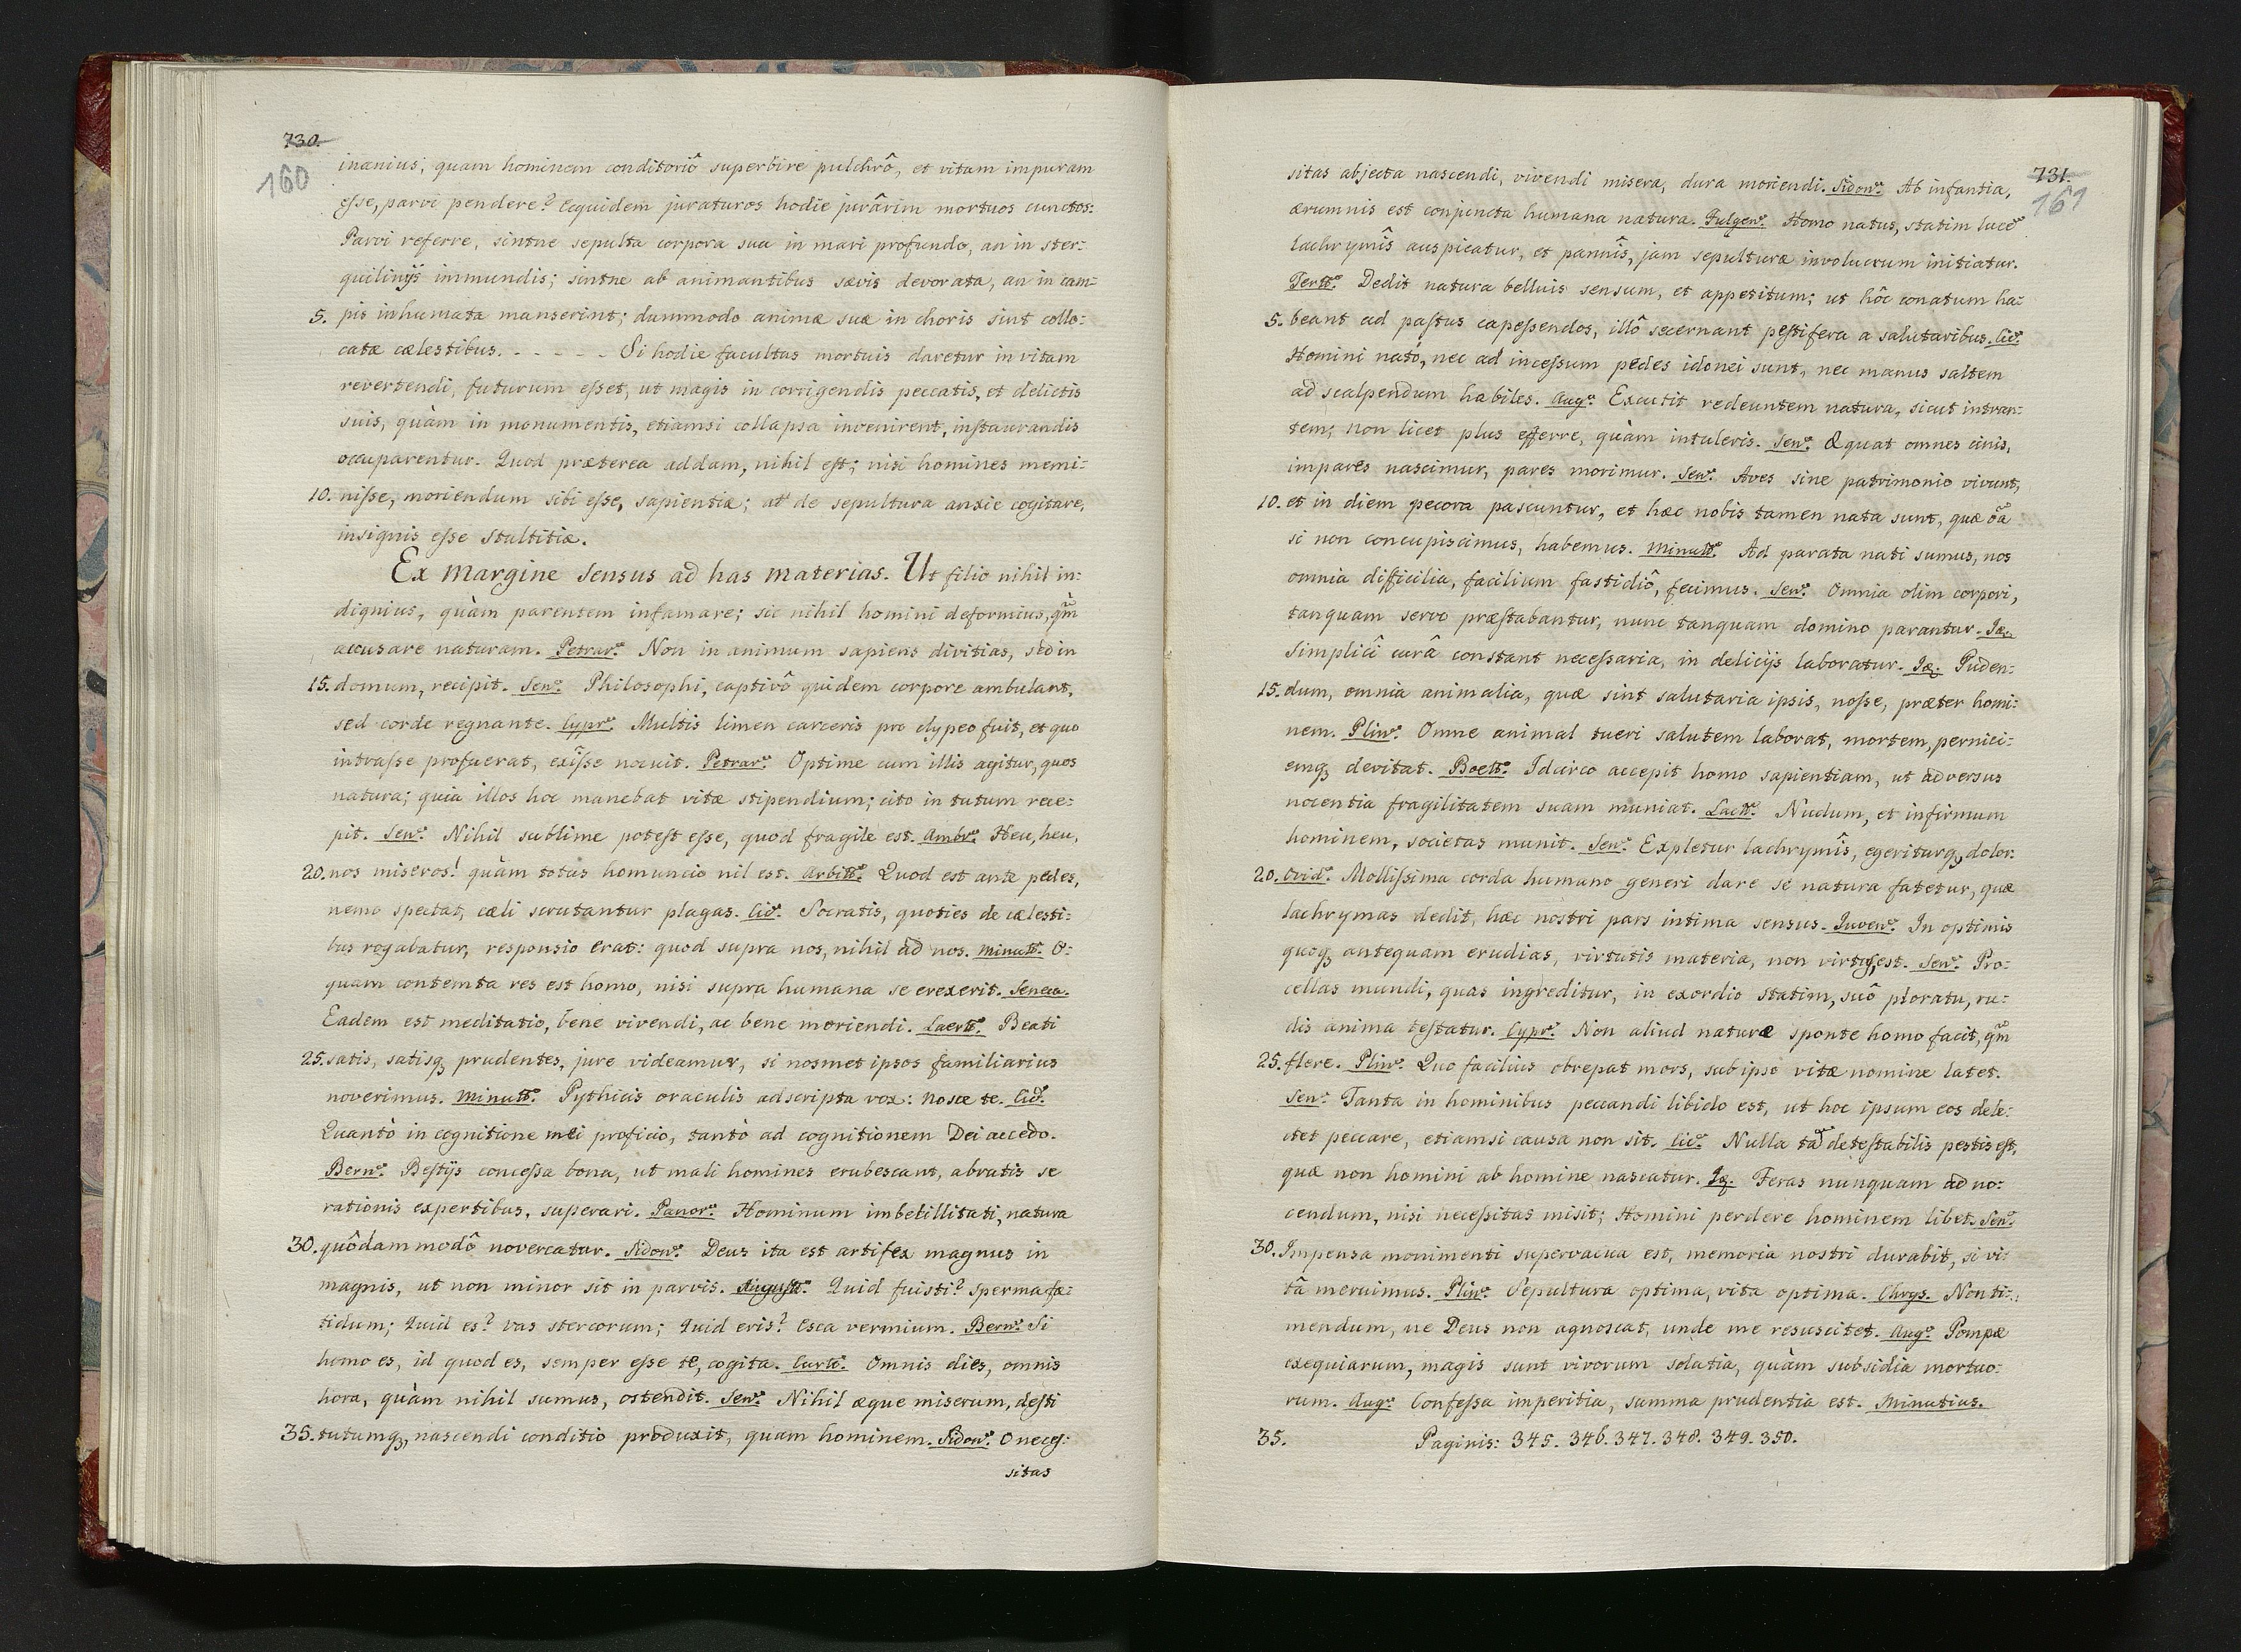 730.
160
inanius; quam hominem conditoriô superbire pulchrô, et vitam impuram
esse, parvi pendere? Ecquidem juraturos hodie jurârim mortuos cunctos:
Parvi referre, sintne sepulta corpora sua in mari profundo, an in ster:
quilinijs immundis; sintne ab animantibus sævis devorata, an in cam:
5. pis inhumata manserint; dummodo animæ suæ in choris sint collo:
catæ cælestibus. - - - - - Si hodie facultas mortuis daretur in vitam
revertendi, futurum esset, ut magis in corrigendis peccatis, et delictis
suis, quàm in monumentis, etiamsi collapsa invenirent, instaurandis
occuparentur. Quod præterea addam, nihil est; nisi homines memi:
10. nisse, moriendum sibi esse, sapientiæ; at de sepultura anxie cogitare,
insignis esse stultitiæ.
Ex Margine Sensus ad has materias. Ut filio nihil in:
dignius, quàm parentem infamare; sic nihil homini deformius, qm̃
accusare naturam. Petrar: Non in animum sapiens divitias, sed in
15. domum, recipit. Sen: Philosophi, captivô quidem corpore ambulant,
sed corde regnante. Cypr: Multis limen carceris pro clypeo fuit, et quo
intrasse profuerat, exîsse nocuit. Petrar: Optime cum illis agitur, quos
natura; quia illos hoc manebat vitæ stipendium; cito in tutum rece:
pit. Sen: Nihil sublime potest esse, quod fragile est. Ambr: Heu, heu,
20. nos miseros! quàm totus homuncio nil est. Arbitr: Quod est ante pedes,
nemo spectat, cæli scrutantur plagas. Cic: Socratis, quoties de cælesti:
bus rogabatur, responsio erat: quod supra nos, nihil ad nos. Minut: O:
quam contemta res est homo, nisi supra humana se erexerit. Seneca.
Eadem est meditatio, bene vivendi, ac bene moriendi. Laert: Beati
25. satis, satisq₃ prudentes, jure videamur, si nosmet ipsos familiarius
noverimus. Minutt: Pythicis oraculis adscripta vox: Nosce te. Cic:
Quantò in cognitione mei proficio, tantò ad cognitionem Dei accedo.
Bern: Bestijs concessa bona, ut mali homines erubescant, abrutis se
rationis expertibus, superari. Panor: Hominum imbecillitati, natura
30. quôdammodô novercatur. Sidon: Deus ita est artifex magnus in
magnis, ut non minor sit in parvis. August: Quid fuisti? sperma fæ:
tidum; Quid es? vas stercorum; Quid eris? Esca vermium. Bern: Si
homo es, id quod es, semper esse te, cogita. Curt: Omnis dies, omnis
hora, quàm nihil sumus, ostendit. Sen: Nihil æque miserum, desti
35. tutumq₃, nascendi conditio produxit, quam hominem. Sidon: O neces:
sitas
731.
161
sitas abjecta nascendi, vivendi misera, dura moriendi. Sidon: Ab infantia,
ærumnis est conjuncta humana natura. Fulgen: Homo natus, statim luce
lachrymîs auspicatur, et pannîs, jam sepulturæ involucrum initiatur.
Tert: Dedit natura belluis sensum, et appetitum; ut hôc conatum ha:
5. beant ad pastus capessendos, illô secernant pestifera a salutaribus. Cic:
Homini natô, nec ad incessum pedes idonei sunt, nec manus saltem
ad scalpendum habiles. Aug: Excutit redeuntem natura, sicut intran:
tem; non licet plus efferre, quàm intuleris. Sen: Æquat omnes cinis,
impares nascimur, pares morimur. Sen: Aves sine patrimonio vivunt,
10. et in diem pecora pascuntur, et hæc nobis tamen nata sunt, quæ oa͠
si non concupiscimus, habemus. Minutt: Ad parata nati sumus, nos
omnia difficilia, facilium fastidiô, fecimus. Sen: Omnia olim corpori,
tanquam servo præstabantur, nunc tanquam domino parantur. Iæ.
Simplicî curâ constant necessaria, in delicijs laboratur. Iæ. Puden:
15. dum, omnia animalia, quæ sint salutaria ipsis, nosse, præter homi:
nem. Plin: Omne animal tueri salutem laborat, mortem, pernici:
emq₃ devitat. Boett: Idcirco accepit homo sapientiam, ut adversus
nocentia fragilitatem suam muniat. Lactt: Nudum, et infirmum
hominem, societas munit. Sen: Expletur lachrymîs, egeriturq₃ dolor.
20. Ovid: Mollissima corda humano generi dare se natura fatetur, quæ
lachrymas dedit, hæc nostri pars intima sensus. Juven: In optimis
quoq₃ antequam erudias, virtutis materia, non virtus, est. Sen: Pro:
cellas mundi, quas ingreditur, in exordio statim, suô ploratu, ru:
dis anima testatur. Cypr: Non aliud naturæ sponte homo facit, qm̃
25. flere. Plin: Quo facilius obrepat mors, sub ipso vitæ nomine latet.
Sen: Tanta in hominibus peccandi libido est, ut hoc ipsum eos dele:
ctet peccare, etiamsi causa non sit. Cic: Nulla ta͠ detestabilis pestis est,
quæ non homini ab homine nascatur. Iq. Feras nunquam ad no:
cendum, nisi necessitas misit; Homini perdere hominem libet. Sen:
30. Impensa monimenti supervacua est, memoria nostri durabit, si vi:
tâ meruimus. Plin: Sepultura optima, vita optima. Chrys. Non ti:
mendum, ne Deus non agnoscat, unde me resuscitet. Aug: Pompæ
exequiarum, magis sunt vivorum solatia, quàm subsidia mortuo:
rum. Aug: Confessa imperitia, summa prudentia est. Minutius.
35. Paginis: 345. 346. 347. 348. 349. 350.